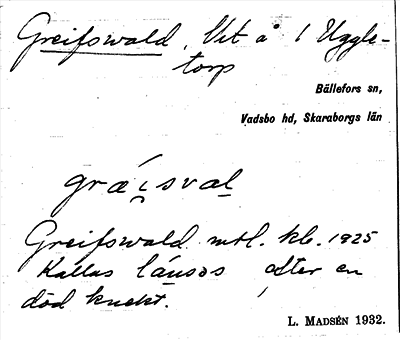 Greifswald, Vit å 1 Uggle-
torp
Bällefors sn,
Vadsbo hd, Skaraborgs län
græi̯sval
Greifswald mtl. kb. 1925
Kallas efter en
död knekt.
L. MADSÉN 1932.